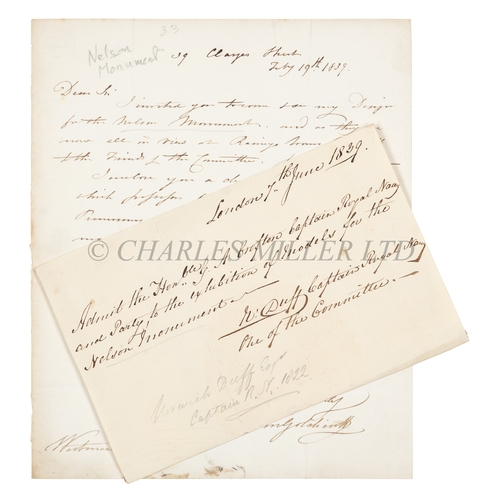 33
Nelson
Monument
39 Clarges Street
Feby 19th 1839.
Dear Sir
I invited you to come see my Design
for the Nelson Monument and as they
now all in view at Rainys
to the Friends of the Committee
I enclose you a
which
London 7th June 1839.
Admit the Honble G. A. Crofton Captain Royal Navy
and Party, to the exhibition of models for the
Nelson Monument
N. Duff Captain Royal Navy
One of the Committee.
Norwich Duff Esqr
Captain R.N. 1822
© CHARLES MILLER LTD